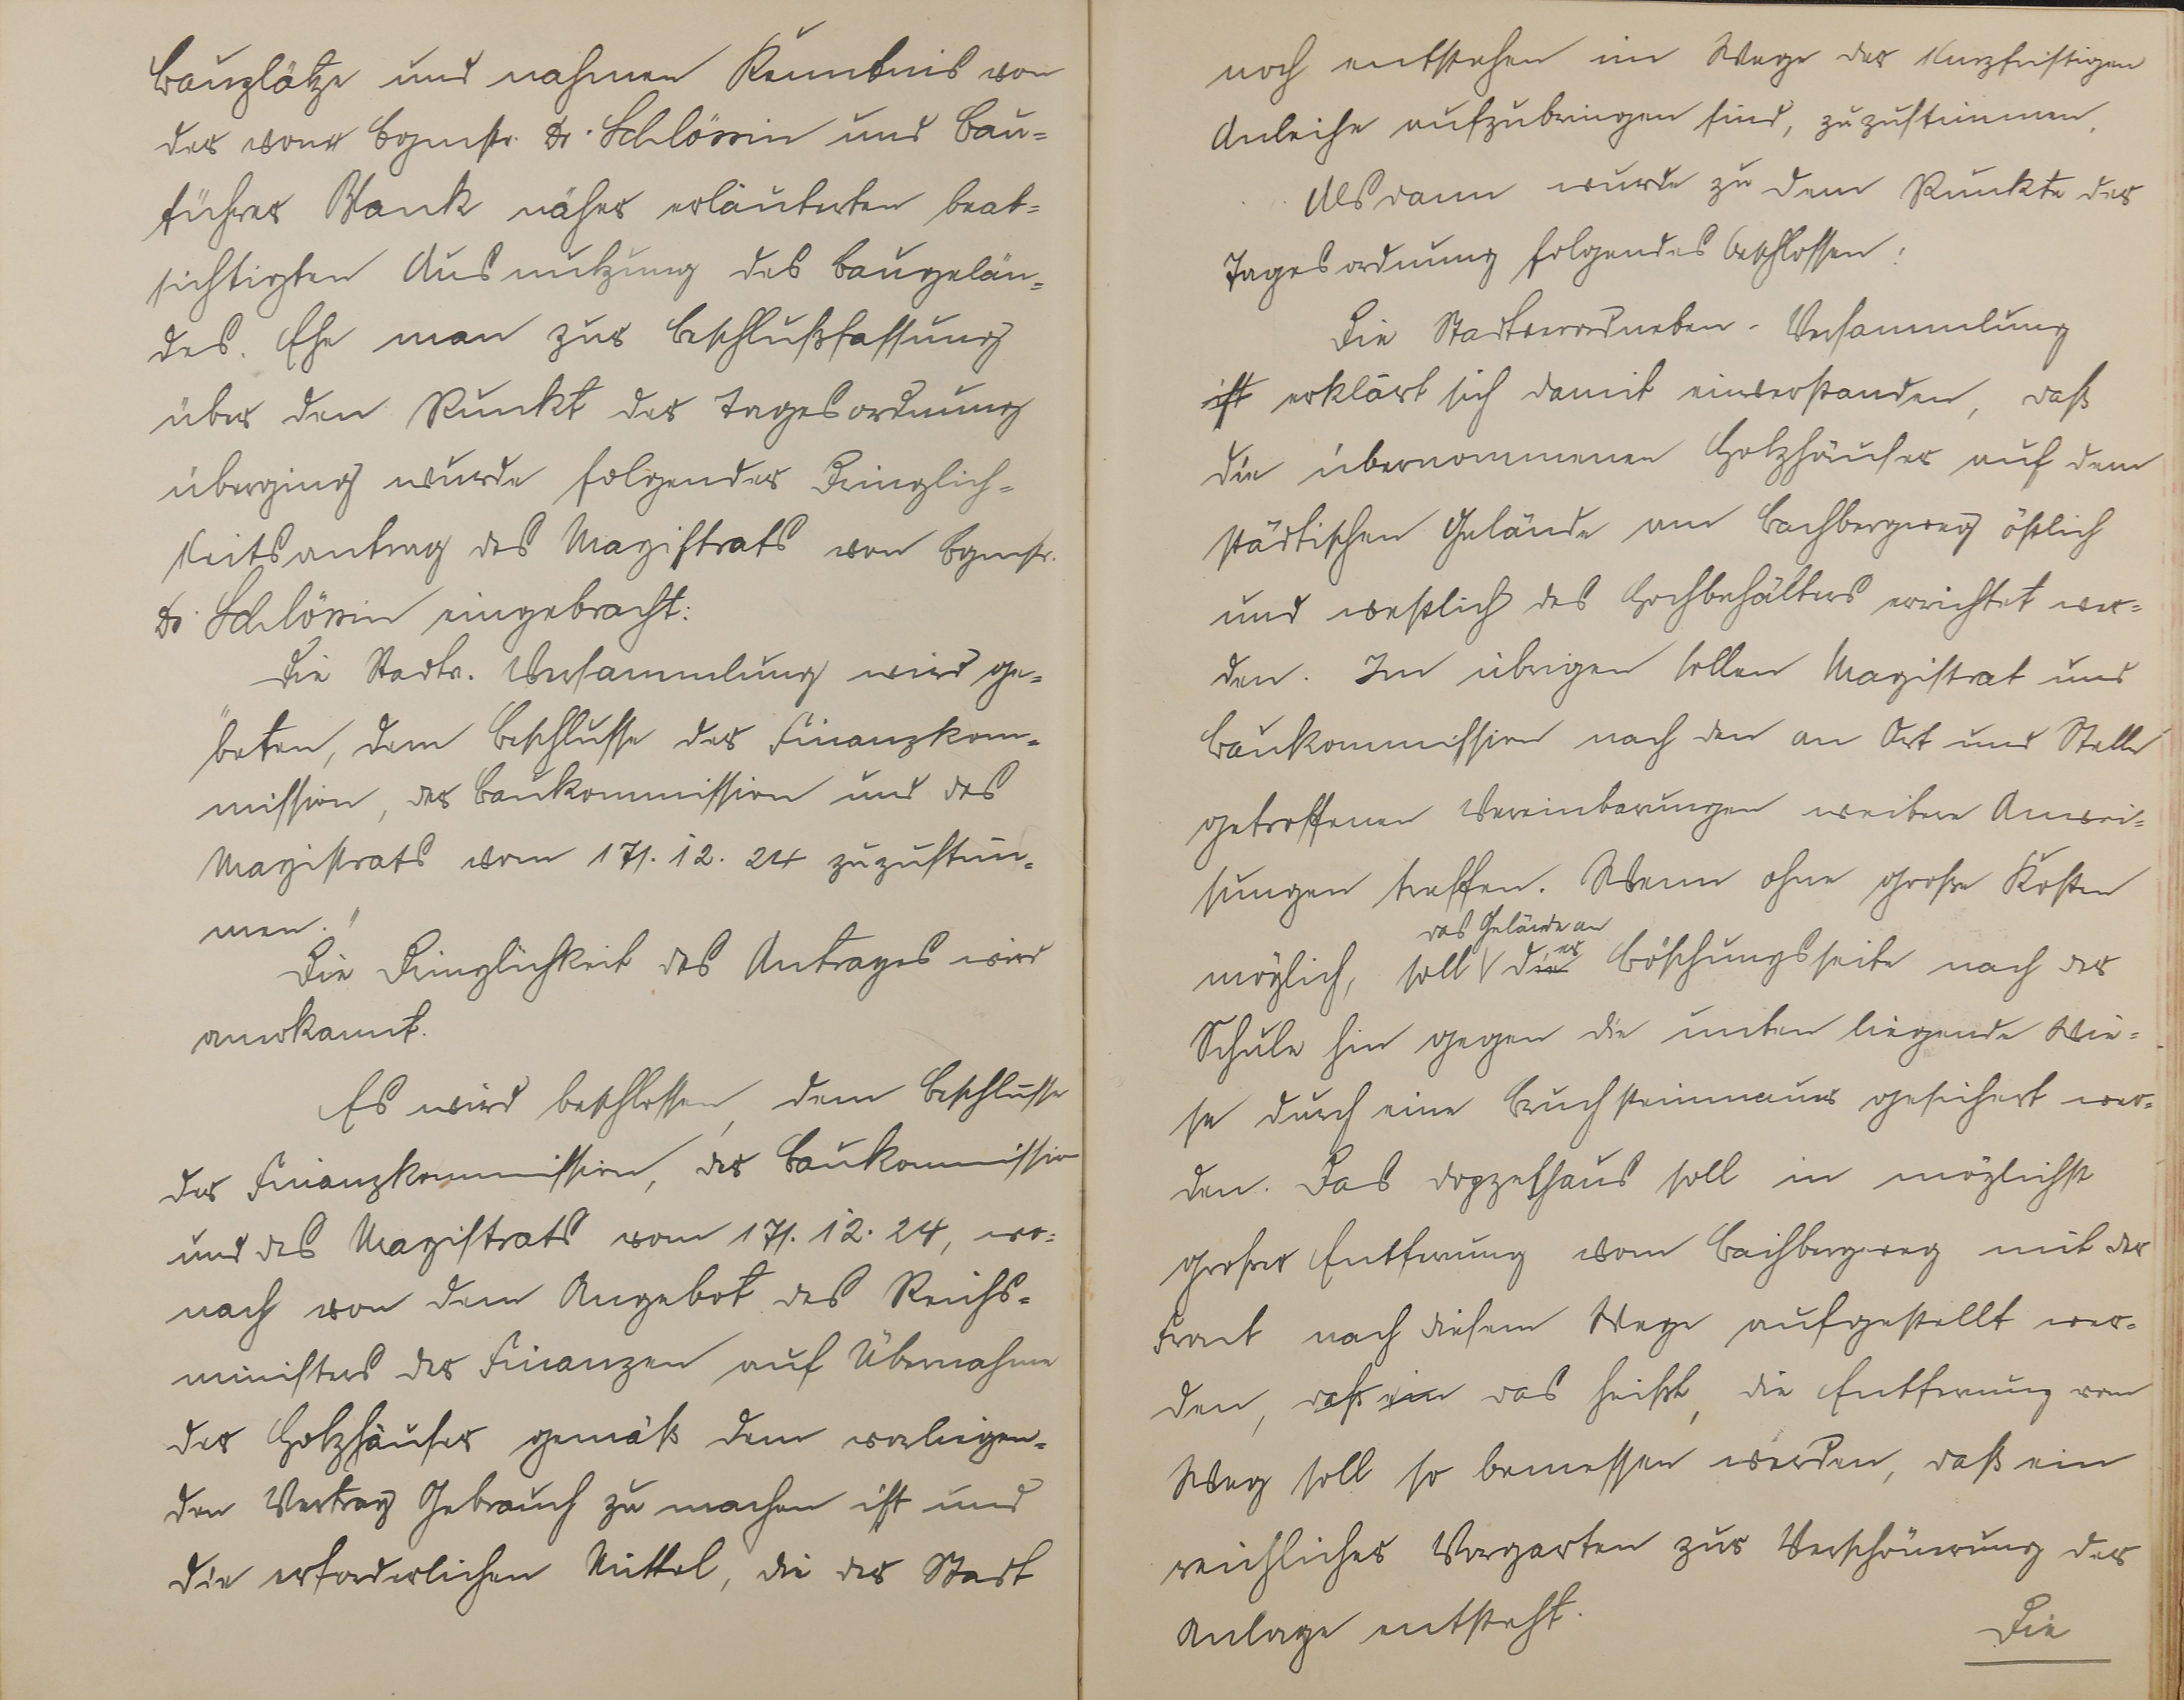 Bauplätze und nahmen Kenntnis von
der vom Bgmstr. Dr. Schlössin und Bau=
führer Blank näher erläuterten beab=
sichtigten Ausnutzung des Baugelän=
des. Ehe man zur Beschlußfassung
über den Punkt der Tagesordnung
überging wurde folgender Dringlich=
keitsantrag des Magistrats von Bgmstr.
Dr. Schlössin eingebracht:
Die Stadtv. Versammlung wird ge=
"beten, dem Beschlusse der Finanzkom=
mission, der Baukommission und des
Magistrats vom 17. 12. 24 zuzustim=
men."
Die Dringlichkeit des Antrages wird
anerkannt.
Es wird beschlossen, dem Beschlusse
der Finanzkommission, der Baukommission
und des Magistrats vom 17. 12. 24, wo=
nach von dem Angebot des Reichs=
ministers der Finanzen auf Übernahme
der Holzhäuser gemäß dem vorliegen=
den Vertrag Gebrauch zu machen ist und
die erforderlichen Mittel, die der Stadt
noch entstehen im Wege der kurzfristigen
Anleihe aufzubringen sind, zuzustimmen.
Alsdann wurde zu dem Punkte der
Tagesordnung folgendes beschlossen:
Die Stadtverordneten-Versammlung
ist erklärt sich damit einverstanden, daß
die übernommenen Holzhäuser auf dem
städtischen Gelände am Bachbergweg östlich
und westlich des Hochbehälters errichtet wer=
den. Im übrigen sollen Magistrat und
Baukommission nach den an Ort und Stelle
getroffenen Vereinbarungen weitere Anwei=
sungen treffen. Wenn ohne große Kosten
das Gelände an
möglich, soll die er Böschungsseite nach der
Schule hin gegen die unten liegende Wie=
se durch eine Bruchsteinmauer gesichert wer=
den. Das Doppelhaus soll in möglichst
großer Entfernung vom Bachbergweg mit der
Front nach diesem Wege aufgestellt wer=
den, daß ein das heißt, die Entfernung vom
Weg soll so bemessen werden, daß ein
reichlicher Vorgarten zur Verschönerung der
Anlage entsteht.
Die